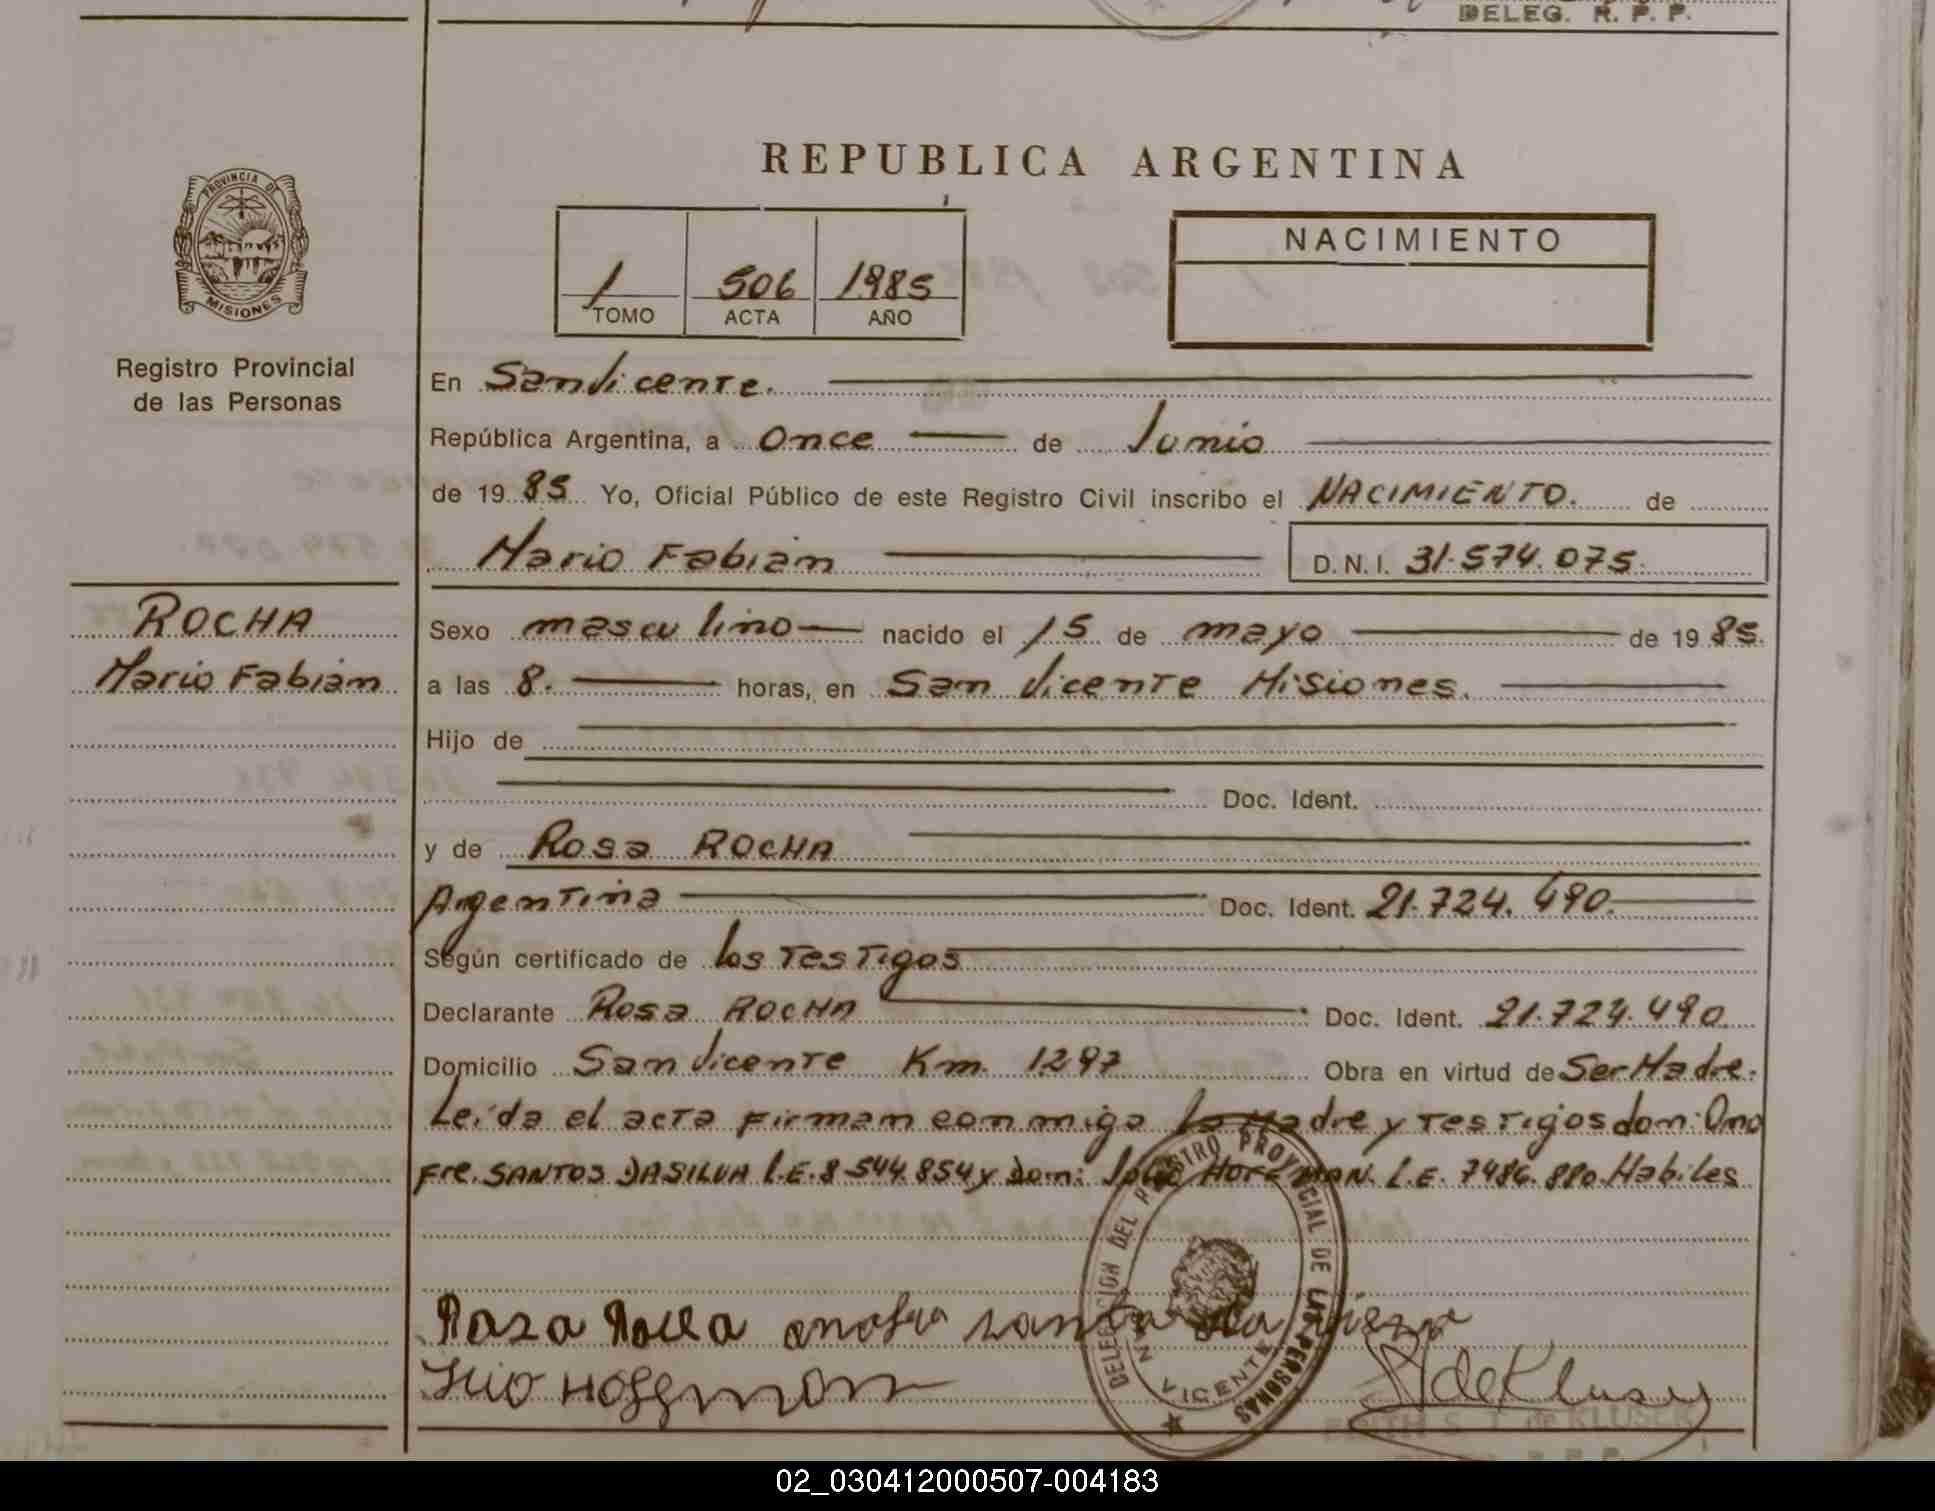 DELEG. R. P. P.
REPUBLICA ARGENTINA
PROVINCIA DE
MISIONES
Registro Provincial
de las Personas
1 506 1985
TOMO ACTA AÑO
NACIMIENTO
En San Vicente.
República Argentina, a once de Junio
de 1985 Yo, Oficial Público de este Registro Civil inscribo el NACIMIENTO. de
Mario Fabián D.N.I. 31.574.075.
ROCHA
Mario Fabián
Sexo masculino nacido el 15 de mayo de 1985.
a las 8. horas, en San Vicente Misiones.
Hijo de
Doc. Ident.
y de Rosa ROCHA
Argentina Doc. Ident. 21.724.490.
Según certificado de los Testigos
Declarante Rosa ROCHA Doc. Ident. 21.724.490.
Domicilio San Vicente Km. 1297 Obra en virtud de Ser Madre.
Leída el acta firman conmigo la Madre y Testigos don: Ono
fre. SANTOS DASILVA L.E. 8-544.854 y Don: Julio HOFFMAN. L.E. 7486.880. Habiles
DELEGACION DEL REGISTRO PROVINCIAL DE LAS PERSONAS
SAN VICENTE
Rosa Rocha onofre santo da
Julio Hoffmann
EDITH S. T. de KLUSER
02_030412000507-004183